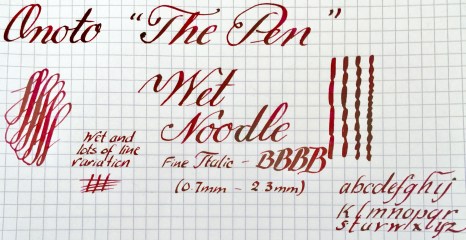 Onoto “The Pen”
Wet
Noodle
Wet and
lots of line
variation
Fine Italic - BBBB
(0.7mm - 2.3mm)
abcdefghij
klmnopqr
stuvwxyz